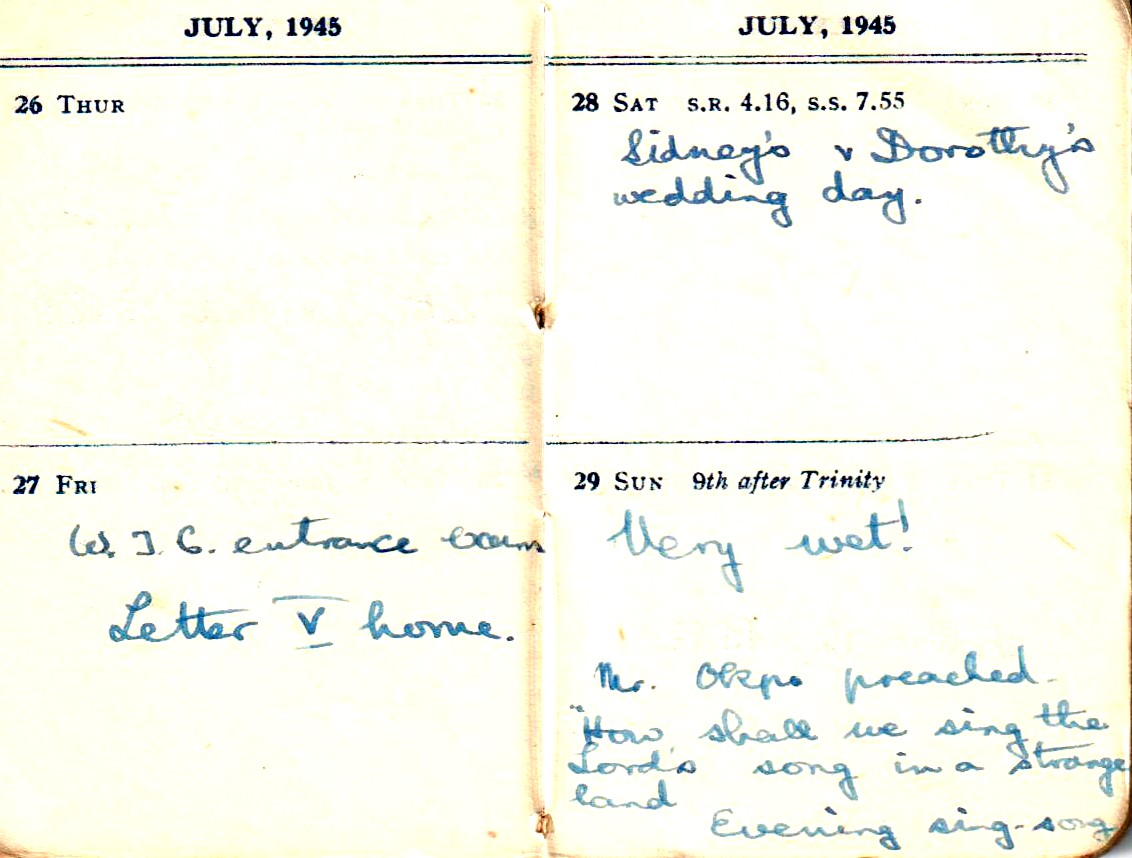 JULY, 1945
26 THUR
27 FRI
W. T. C. entrance exam
Letter V home.
JULY, 1945
28 SAT S.R. 4.16, S.S. 7.55
Sidney's & Dorothy's
wedding day.
29 SUN 9th after Trinity
Very wet!
Mr. Okpo preached.
"How shall we sing the
Lord's song in a strange
land
Evening sing-song